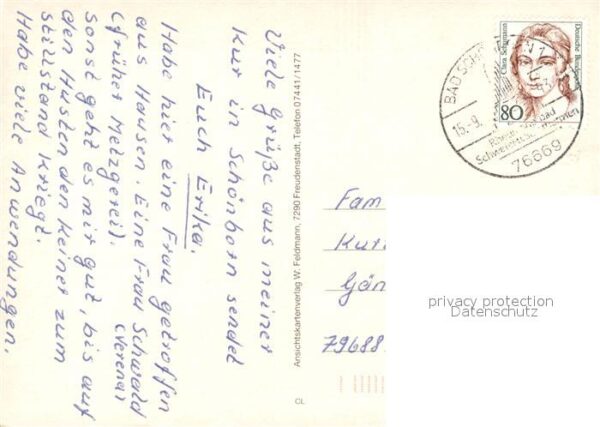 Viele Grüße aus meiner
Kur in Schönborn sendet
Euch Erika.
Habe hier eine Frau getroffen
aus Hausen. Eine Frau Schwald
(früher Metzgerei). (Verena)
Sonst geht es mir gut, bis auf
den Husten den keiner zum
stillstand kriegt.
Habe viele Anwendungen.
Ansichtskartenverlag W. Feldmann, 7290 Freudenstadt, Telefon 07441/1477
CL
BAD SCH
16.-9.
76669
80
Clara Schumann
Deutsche Bundespost
Fam
Kur
Gän
79688
privacy protection
Datenschutz